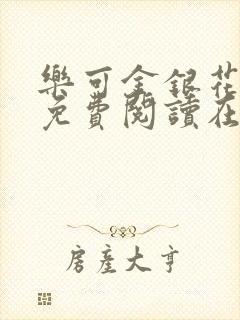 樂可金銀花
免費閱讀在
房產大亨